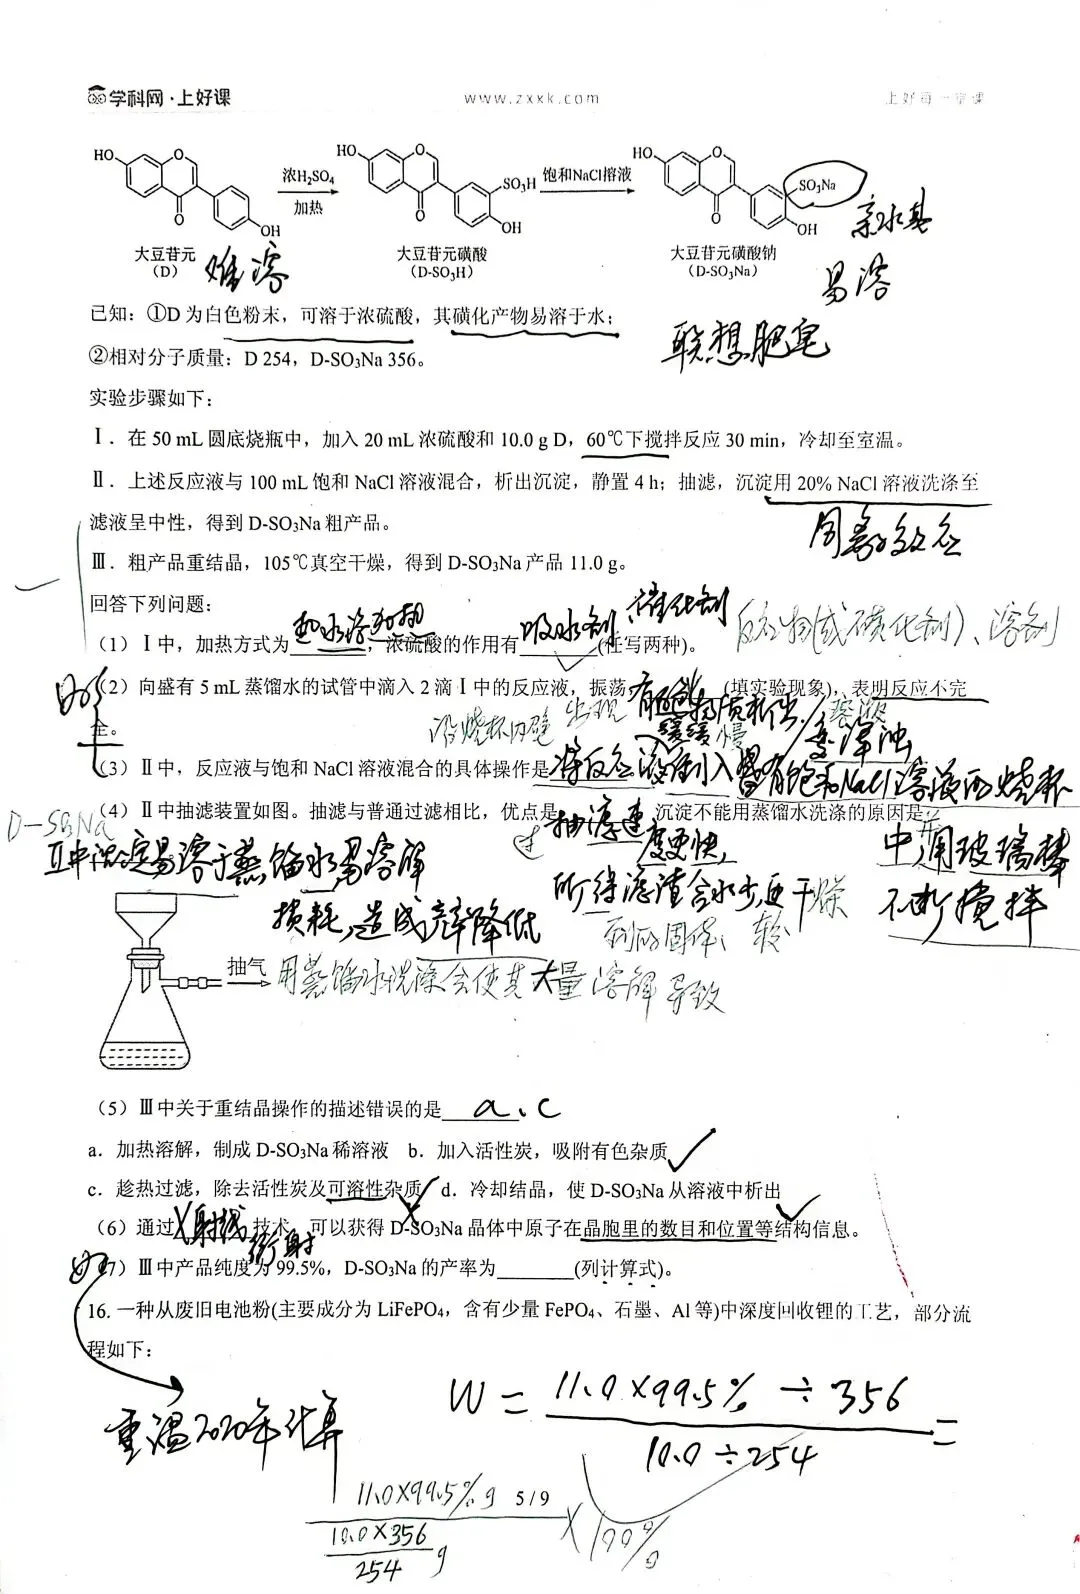 学科网·上好课 www.zxxk.com 上好每一堂课
HO O O OH 浓H₂SO₄ 加热 HO O O SO₃H OH 饱和NaCl溶液 HO O O SO₃Na OH
亲水基
大豆苷元 大豆苷元磺酸 大豆苷元磺酸钠
(D) 难溶 (D-SO₃H) (D-SO₃Na) 易溶
已知：①D 为白色粉末，可溶于浓硫酸，其磺化产物易溶于水；
联想肥皂
②相对分子质量：D 254，D-SO₃Na 356。
实验步骤如下：
Ⅰ．在 50 mL 圆底烧瓶中，加入 20 mL 浓硫酸和 10.0 g D，60℃下搅拌反应 30 min，冷却至室温。
Ⅱ．上述反应液与 100 mL 饱和 NaCl 溶液混合，析出沉淀，静置 4 h；抽滤，沉淀用 20% NaCl 溶液洗涤至
滤液呈中性，得到 D-SO₃Na 粗产品。
同离子效应
Ⅲ．粗产品重结晶，105℃真空干燥，得到 D-SO₃Na 产品 11.0 g。
回答下列问题：
热水浴加热 吸水剂、催化剂 反应物(或磺化剂)、溶剂
（1）Ⅰ中，加热方式为_______，浓硫酸的作用有_______(任写两种)。
（2）向盛有 5 mL 蒸馏水的试管中滴入 2 滴Ⅰ中的反应液，振荡，_______(填实验现象)，表明反应不完
全。
沿烧杯内壁 出现 物质析出/溶液变浑浊
缓缓 慢
（3）Ⅱ中，反应液与饱和 NaCl 溶液混合的具体操作是 将反应液倒入盛有饱和NaCl溶液的烧杯
中，并用玻璃棒
不断搅拌
（4）Ⅱ中抽滤装置如图。抽滤与普通过滤相比，优点是_______，沉淀不能用蒸馏水洗涤的原因是_______。
过 抽滤速度更快，
所得滤渣含水少，更干燥
到的固体 较
D-SO₃Na
Ⅱ中沉淀易溶于蒸馏水，易溶解
损耗，造成产率降低
抽气
用蒸馏水洗涤会使其大量溶解 导致
（5）Ⅲ中关于重结晶操作的描述错误的是 a、c
a．加热溶解，制成 D-SO₃Na 稀溶液 b．加入活性炭，吸附有色杂质
c．趁热过滤，除去活性炭及可溶性杂质 d．冷却结晶，使 D-SO₃Na 从溶液中析出
（6）通过 X射线衍射 技术，可以获得 D-SO₃Na 晶体中原子在晶胞里的数目和位置等结构信息。
（7）Ⅲ中产品纯度为 99.5%，D-SO₃Na 的产率为_______(列计算式)。
16. 一种从废旧电池粉(主要成分为 LiFePO₄，含有少量 FePO₄、石墨、Al 等)中深度回收锂的工艺，部分流
程如下：
重温2020年计算
W = 11.0×99.5% ÷ 356 / 10.0 ÷ 254 =
5 / 9
11.0×99.5% g / (10.0×356 / 254) g × 100%